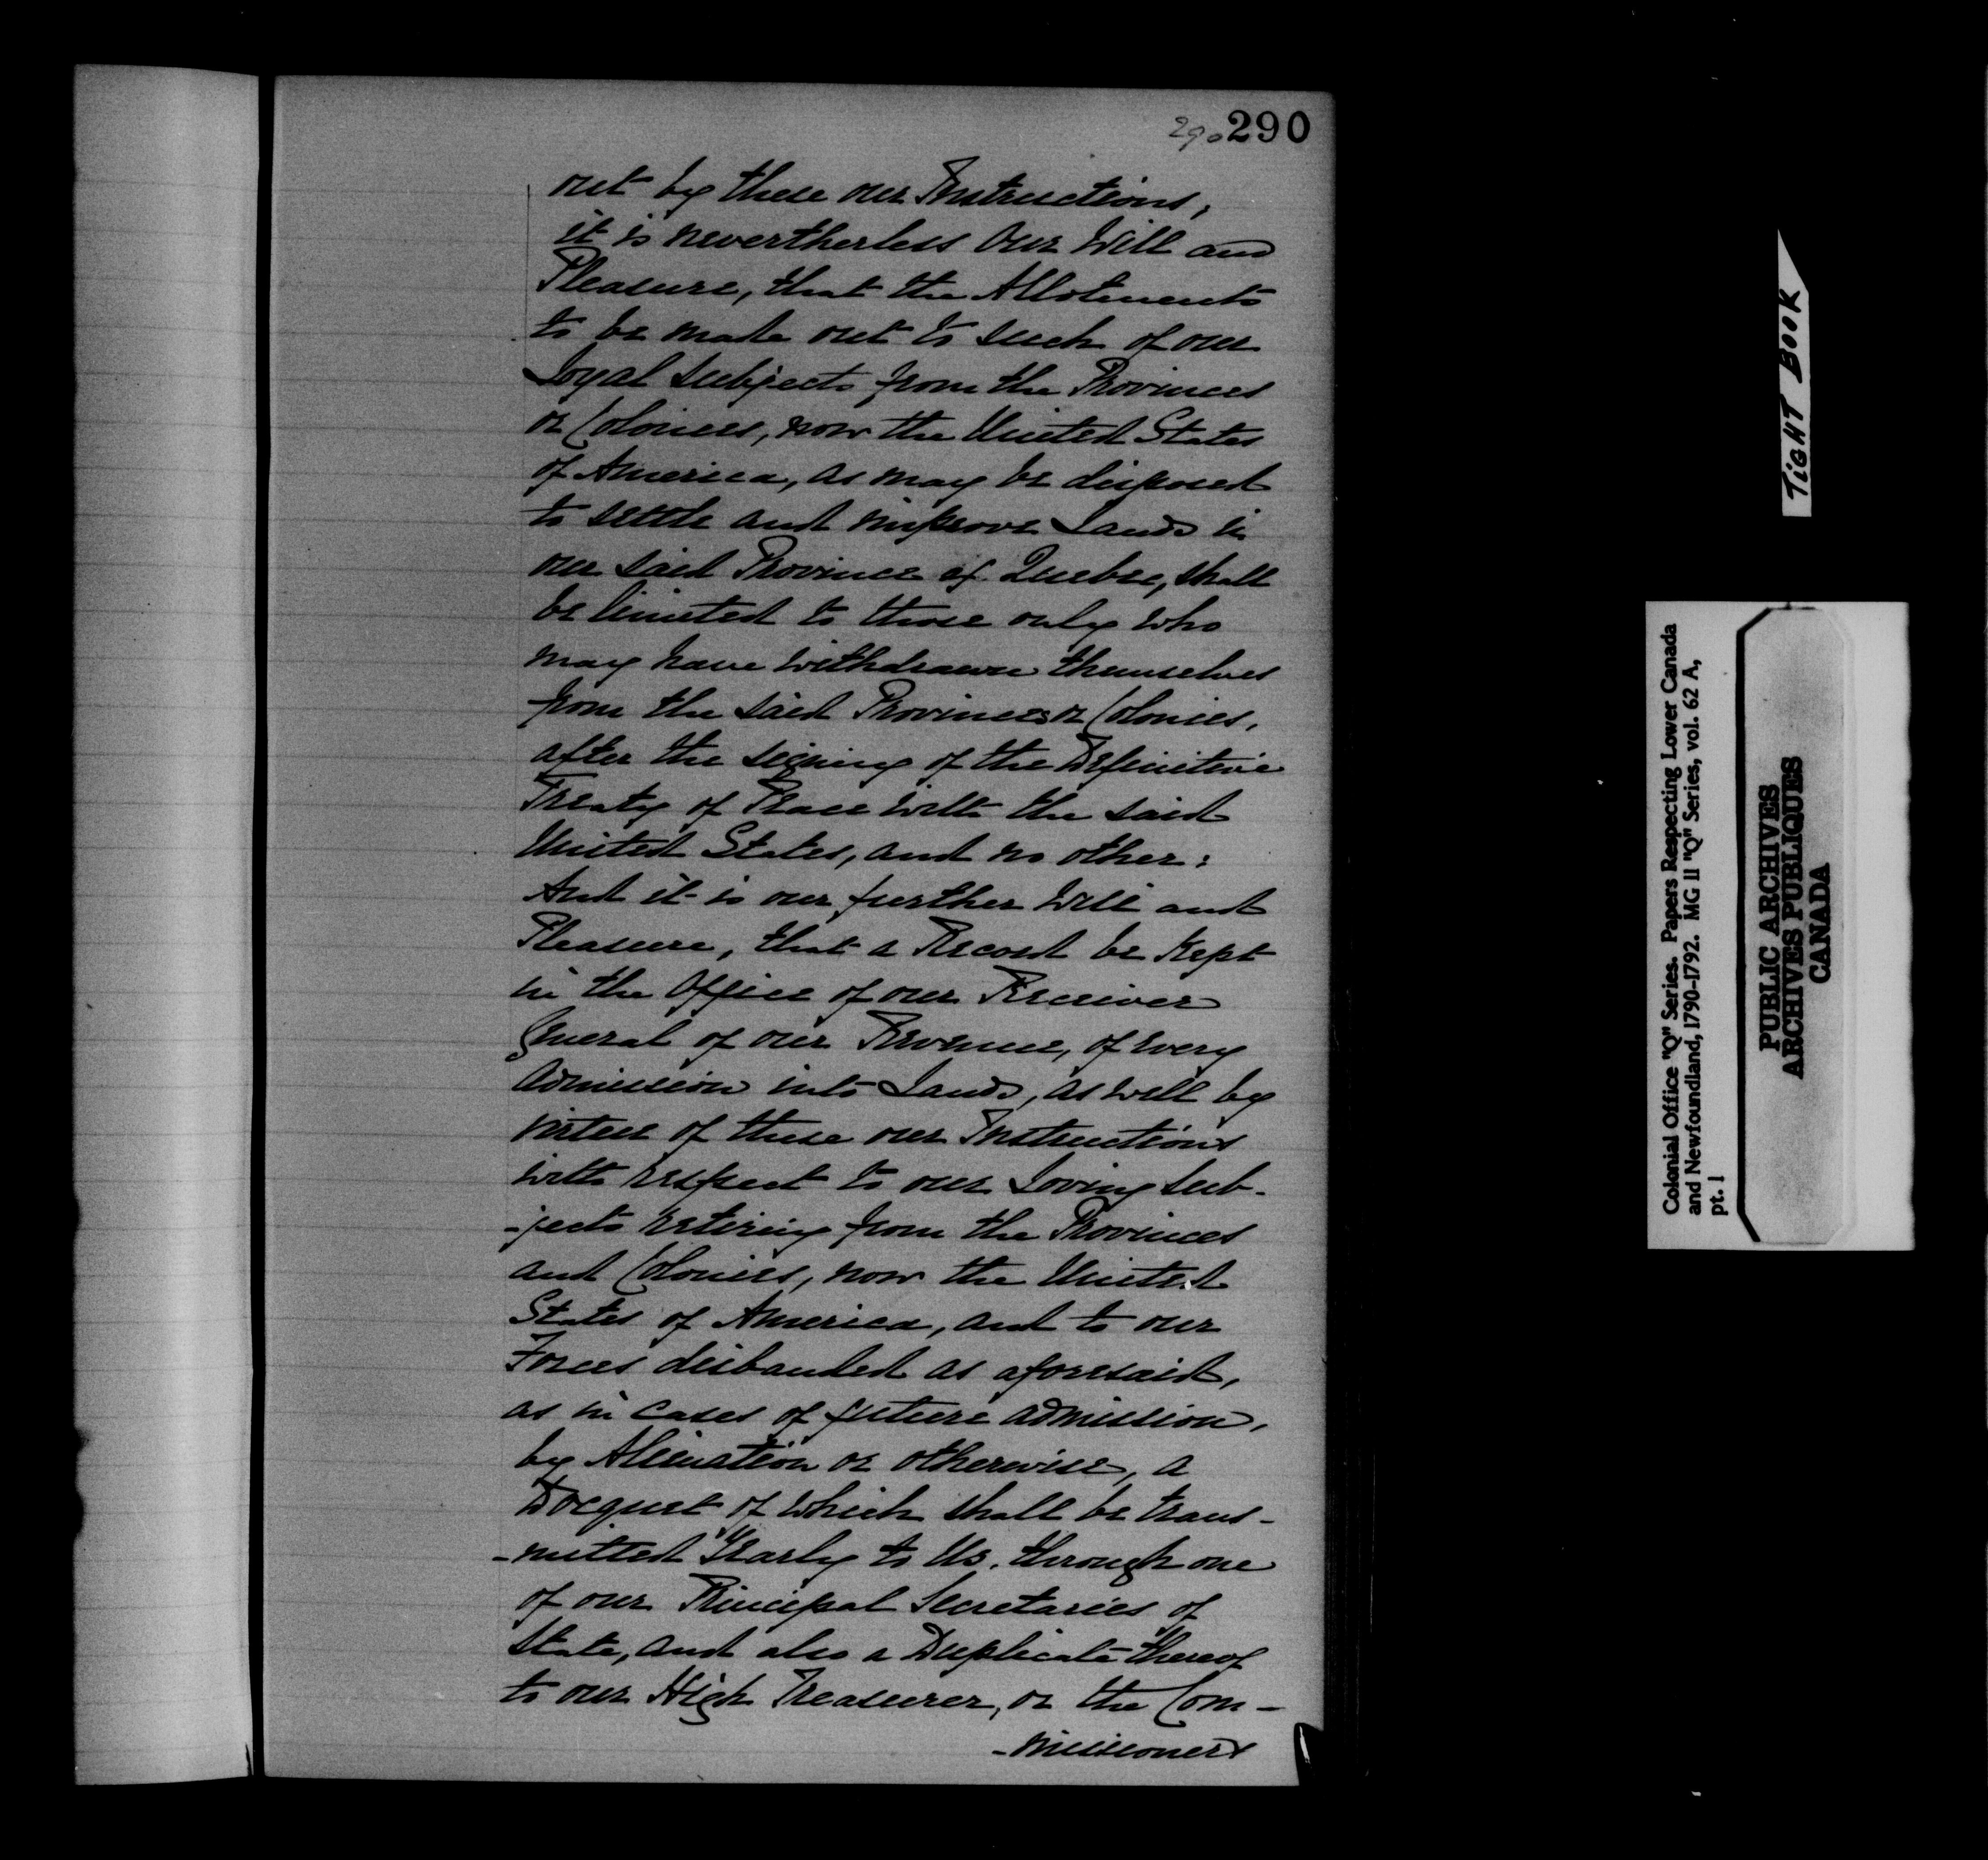 290 290
out by these our Instructions,
it is nevertherless Our Will and
Pleasure, that the Allotments
to be made out to such of our
Loyal subjects from the Provinces
or Colonies, now the United States
of America, as may be disposed
to settle and improve Lands in
our said Province of Quebec, shall
be limited to those only who
may have withdrawn themselves
from the said Provinces or Colonies,
after the signing of the Definitive
Treaty of Peace with the said
United States, and no other:
And it is our further Will and
Pleasure, that a Record be kept
in the Office of our Receiver
General of our Revenue, of every
Admission into Lands, as well by
virtue of these our Instructions
with respect to our Loving sub-
-jects retiring from the Provinces
and Colonies, now the United
States of America, and to our
Forces disbanded as aforesaid,
as in cases of future admission,
by Alienation or otherwise, a
Docquet of which shall be trans-
-mitted Yearly to Us, through one
of our Principal Secretaries of
State, and also a Duplicate thereof
to our High Treasurer, or the Com-
-missioners
TIGHT BOOK
Colonial Office "Q" Series. Papers Respecting Lower Canada
and Newfoundland, 1790-1792. MG 11 "Q" Series, vol. 62 A,
pt. 1
PUBLIC ARCHIVES
ARCHIVES PUBLIQUES
CANADA